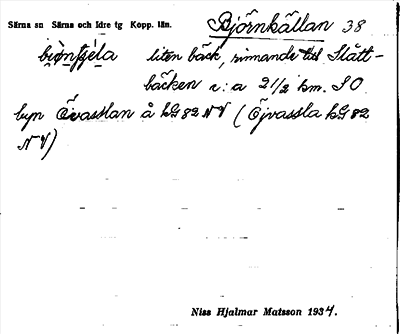 Särna sn Särna och Idre tg Kopp. län. Björnkällan 38
liten bäck, rinnande till Slått-
bäcken c:a 2 1/2 km. SO
byn Övasslan å kG 82 NV (Öjvassla kG 82
NV)
Niss Hjalmar Matsson 1934.